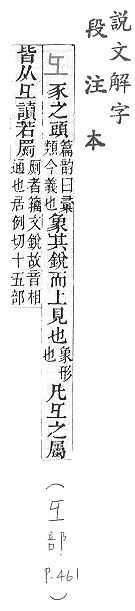 說文解字
段注本
彑豕之頭篇韵曰彙類今義也象其銳而上見也象形也凡彑之屬
皆从彑讀若罽者籒文銳故音相通也居例切十五部
(彑部 P.461)